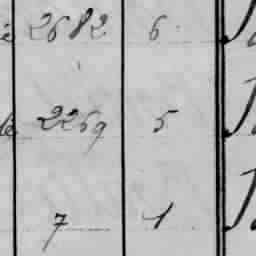 2682 6
2269 5
7 1